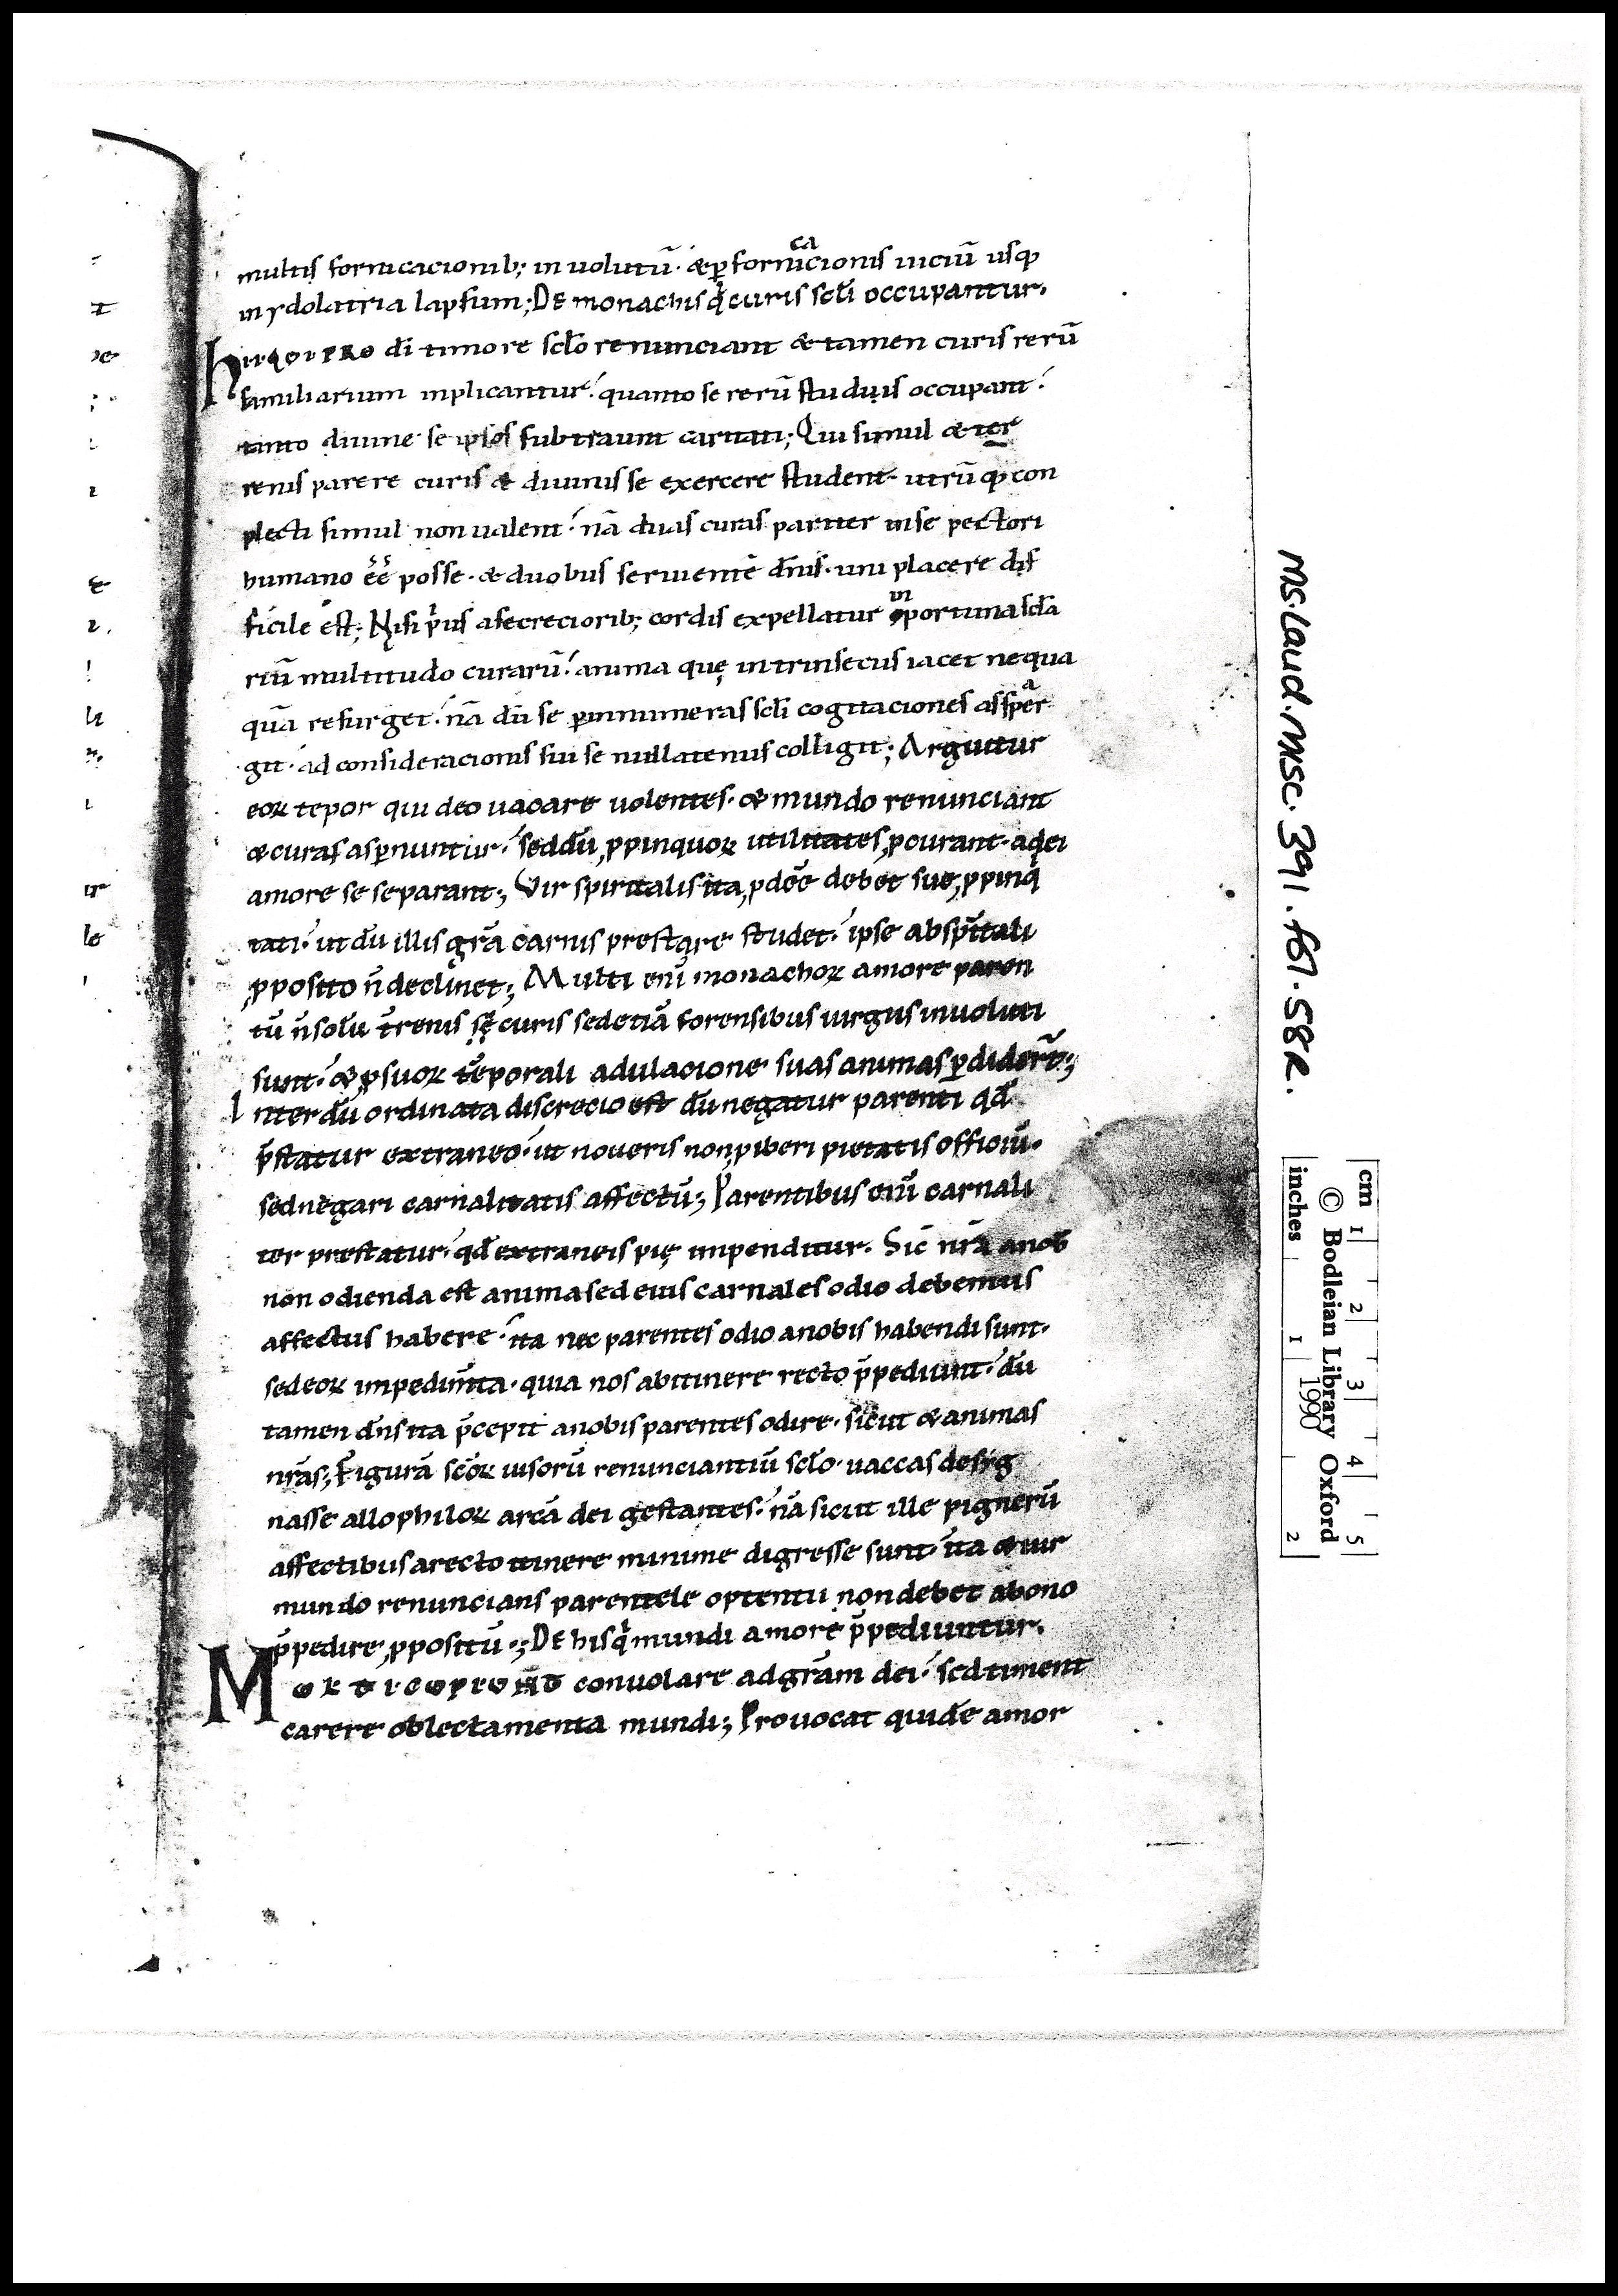 multis fornicacionib; in uolutū· & ꝑ fornicacionis uiciū usq
in ydolatria lapsum; De monachis q̄ curis scłi occupantur.
hii qui pro dī timore scło renunciant & tamen curis rerū
familiarium inplicantur· quanto se rerū studiis occupant·
tanto diuine se ipsos subtraunt caritati; Qui simul & ter
renis parere curis & diuinis se exercere student· utrūq con
plecti simul non ualent· nā duas curas pariter inse pectori
humano ēē posse· & duobus seruientē dn̄is· uni placere dif
ficile est; Nisi pͥus asecreciorib; cordis expellatur inportuna scła
riū multitudo curarū· anima quę intrinsecus iacet nequa
quā resurget· nā dū se ꝑ innumeras scłi cogitaciones assper
git· ad consideracionis sui se nullatenus colligit; Arguitur
eoꝝ tepor qui deo uacare uolentes· & mundo renunciant
& curas aspernuntur· sed dū ꝓpinquoꝝ utilitates ꝓcurant· a dei
amore se separant; Vir spiritalis ita ꝓdēē debet sue ꝓpinq
tati· ut dū illis grā carnis prestare studet· ipse abspītali
ꝓposito n̄ declinet; Multi enī monachoꝝ amore paren
tū n̄ solū t̄renis sę̄ curis sed etiā forensibus iurgiis inuoluti
sunt· & ꝓ suoꝝ tēporali adulacione suas animas ꝑdider̄t;
Inter dū ordinata discrecio est dū negatur parenti qd̄
p̄statur extraneo· ut noueris non ꝓiberi pietatis officiū·
sed negari carnalitatis affectū; Parentibus enī carnali
ter prestatur· qd̄ extraneis pię impenditur. Sic nr̄a anob̄
non odienda est anima sed eius carnales odio debemus
affectus habere· ita nec parentes odio anobis habendi sunt·
sed eoꝝ impedim̄ta· quia nos abitinere recto p̄pediunt· dū
tamen dn̄s ita p̄cepit anobis parentes odire· sicut & animas
nr̄as; Figurā scōꝝ uisorū renunciantiū scło· uaccas desyg
nasse allophiloꝝ arcā dei gestantes· nā sicut ille pignerū
affectibus arecto itinere minime digresse sunt· ita & uir
mundo renuncians parentele optentu non debet abono
p̄pedire ꝓpositū·; De his q̄ mundi amore p̄pediuntur.
Multi cupiunt conuolare ad grām dei· sed timent
carere oblectamenta mundi; Prouocat quidē amor
MS. Laud. Misc. 391. fol. 58R.
cm 1 2 3 4 5
© Bodleian Library Oxford
1990
inches 1 2